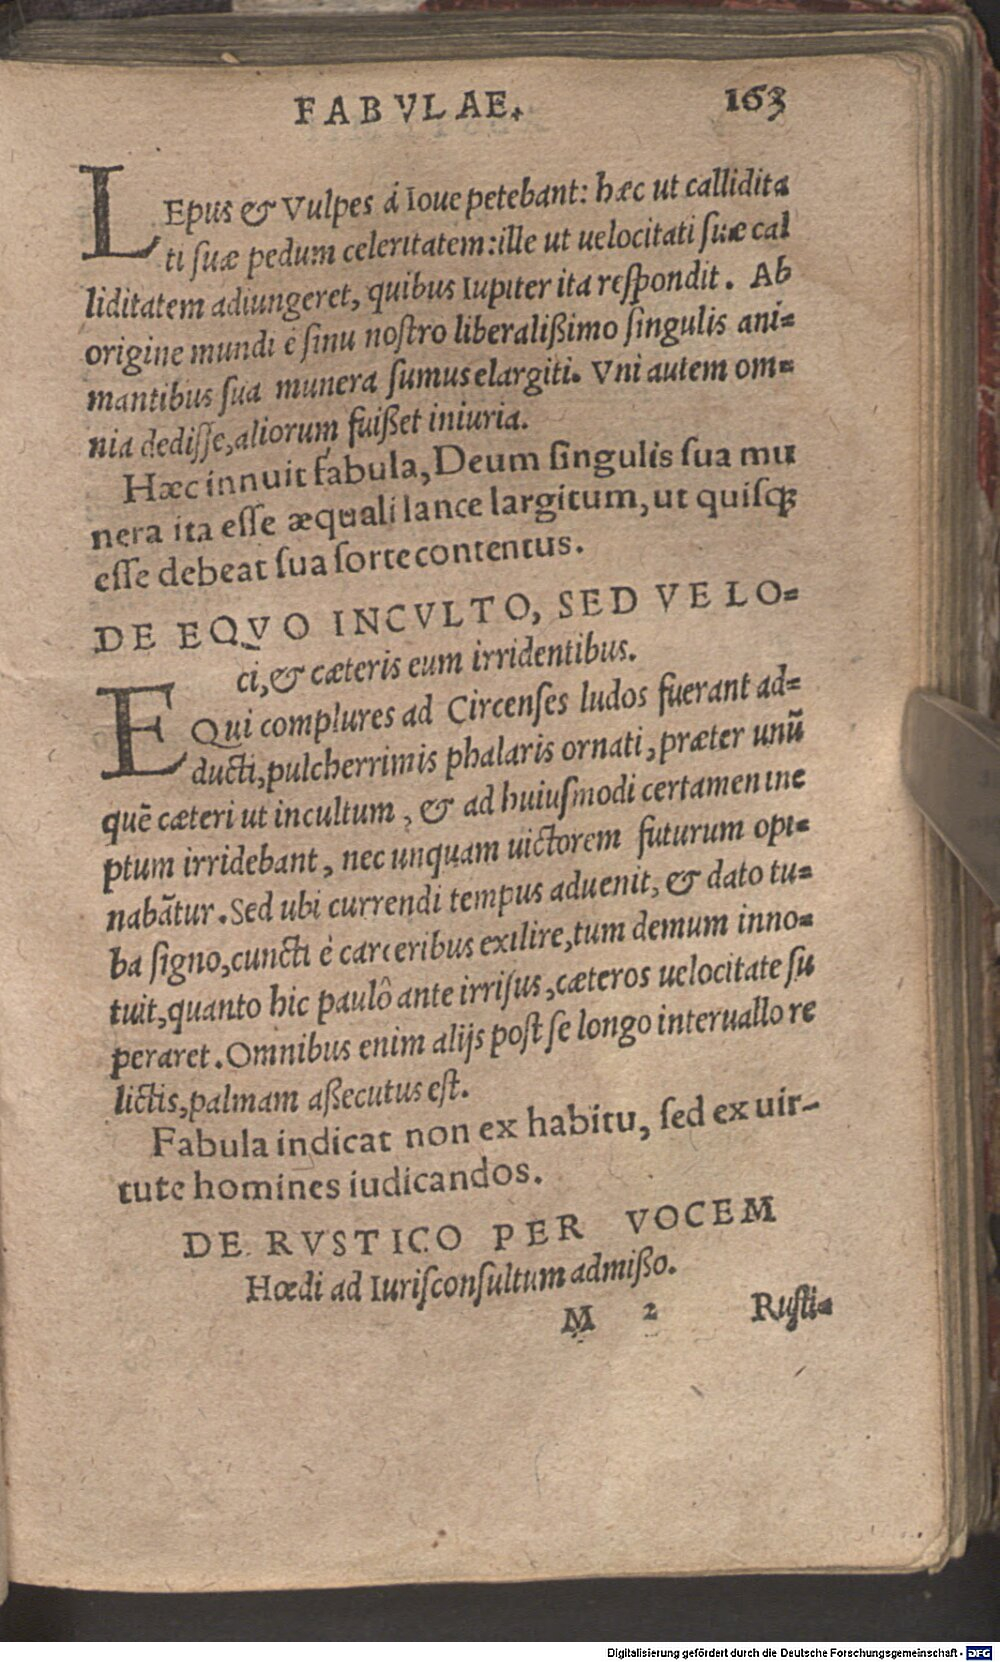 FABVLAE. 163
LEpus & Vulpes á Ioue petebant: hæc ut callidita
ti suæ pedum celeritatem: ille ut uelocitati suæ cal
liditatem adiungeret, quibus Iupiter ita respondit. Ab
origine mundi é sinu nostro liberalißimo singulis ani=
mantibus sua munera sumus elargiti. Vni autem om=
nia dedisse, aliorum fuißet iniuria.
Hæc innuit fabula, Deum singulis sua mu
nera ita esse æquali lance largitum, ut quisqꝫ
esse debeat sua sorte contentus.
DE EQVO INCVLTO, SED VELO=
ci, & cæteris eum irridentibus.
EQui complures ad Circenses ludos fuerant ad=
ducti, pulcherrimis phalaris ornati, præter unũ
quẽ cæteri ut incultum, & ad huiusmodi certamen ine
ptum irridebant, nec unquam uictorem futurum opi=
nabãtur. Sed ubi currendi tempus aduenit, & dato tu=
ba signo, cuncti é carceribus exilire, tum demum inno=
tuit, quanto hic paulô ante irrisus, cæteros uelocitate su
peraret. Omnibus enim alijs post se longo interuallo re
lictis, palmam aßecutus est.
Fabula indicat non ex habitu, sed ex uir-
tute homines iudicandos.
DE RVSTICO PER VOCEM
Hœdi ad Iurisconsultum admißo.
M 2 Rusti=
Digitalisierung gefördert durch die Deutsche Forschungsgemeinschaft - DFG